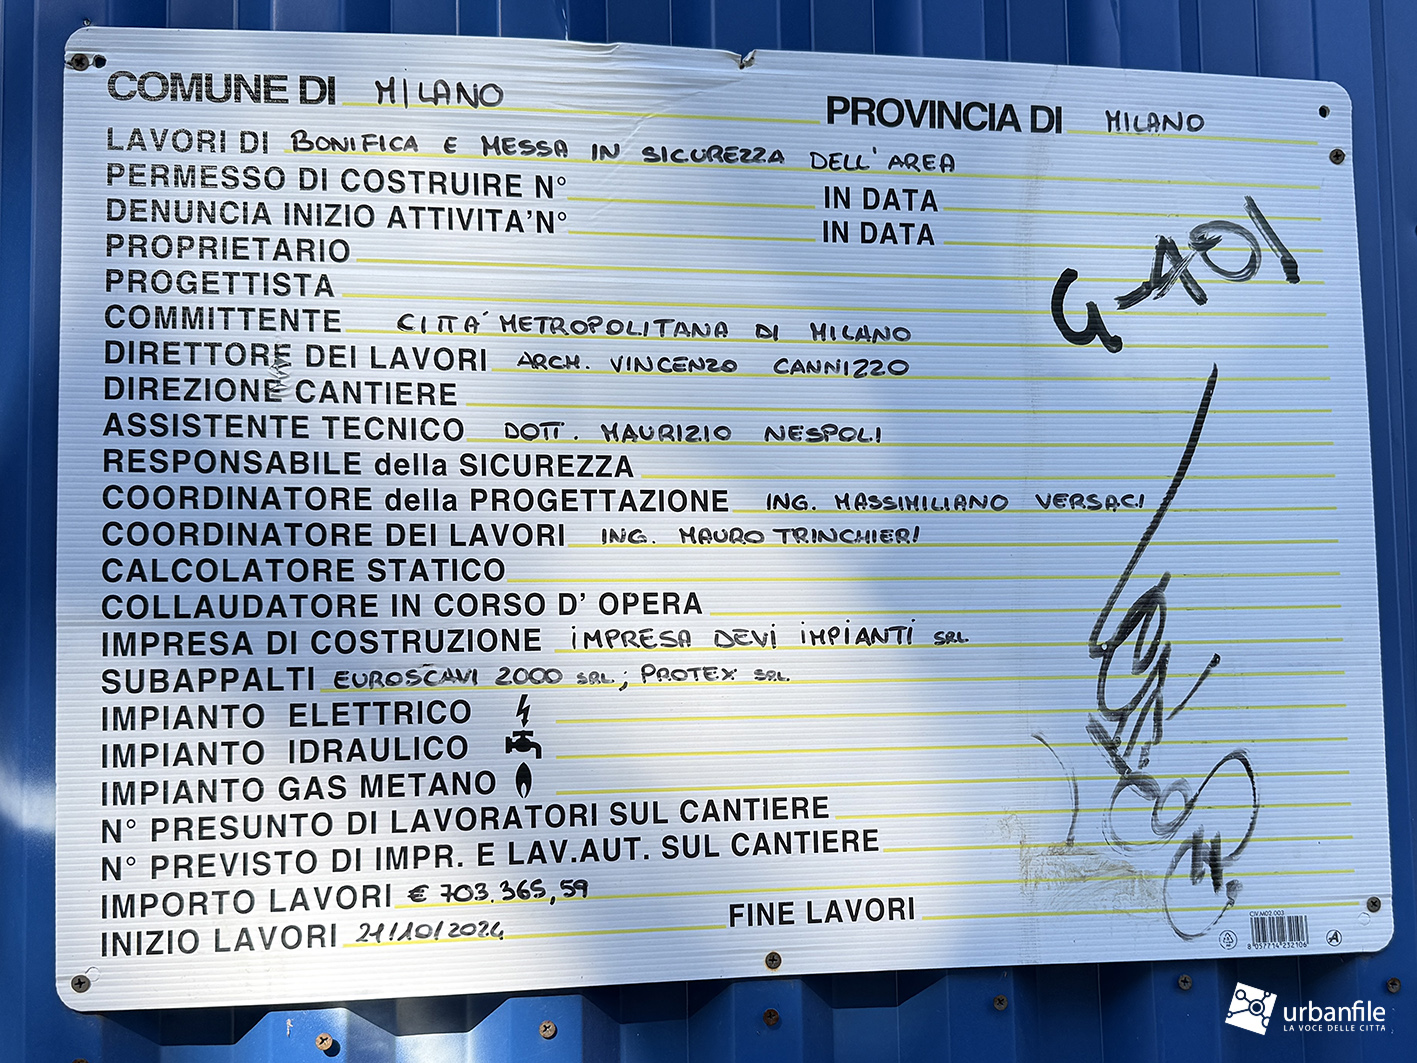 COMUNE DI MILANO PROVINCIA DI MILANO
LAVORI DI BONIFICA E MESSA IN SICUREZZA DELL'AREA
PERMESSO DI COSTRUIRE N° IN DATA
DENUNCIA INIZIO ATTIVITA'N° IN DATA
PROPRIETARIO
PROGETTISTA
COMMITTENTE CITTÀ METROPOLITANA DI MILANO
DIRETTORE DEI LAVORI ARCH. VINCENZO CANNIZZO
DIREZIONE CANTIERE
ASSISTENTE TECNICO DOTT. MAURIZIO NESPOLI
RESPONSABILE della SICUREZZA
COORDINATORE della PROGETTAZIONE ING. MASSIMILIANO VERSACI
COORDINATORE DEI LAVORI ING. MAURO TRINCHIERI
CALCOLATORE STATICO
COLLAUDATORE IN CORSO D' OPERA
IMPRESA DI COSTRUZIONE IMPRESA DEVI IMPIANTI SRL
SUBAPPALTI EUROSCAVI 2000 SRL; PROTEX SRL
IMPIANTO ELETTRICO
IMPIANTO IDRAULICO
IMPIANTO GAS METANO
N° PRESUNTO DI LAVORATORI SUL CANTIERE
N° PREVISTO DI IMPR. E LAV.AUT. SUL CANTIERE
IMPORTO LAVORI € 703.365,59
INIZIO LAVORI 21/10/2024 FINE LAVORI
CIV.M02.003
8 057714 232106
urbanfile
LA VOCE DELLE CITTÀ